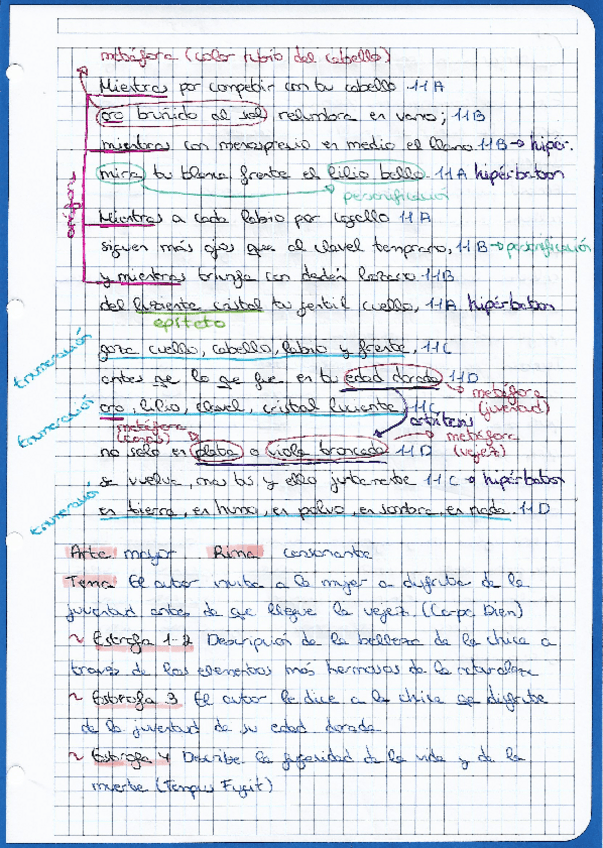 metáfora (color rubio del cabello)
Mientras por competir con tu cabello 11A
oro bruñido al sol relumbra en vano; 11B
mientras con menosprecio en medio el llano 11B → hipér.
mira tu blanca frente el lilio bello. 11A hipérbaton
personificació
Mientras a cada labio por cogello 11A
siguen más ojos que al clavel temprano, 11B → personificación
y mientras triunfa con desdén lozano 11B
del luciente cristal tu gentil cuello, 11A hipérbaton
anáfora
epíteto
goza cuello, cabello, labio y frente, 11C
Enumeración
antes qe lo qe fue en tu edad dorada 11D
metáfora (juventud)
oro, lilio, clavel, cristal luciente, 11C
Enumeración
antítesis
metáfora
no solo en plata o viola troncada 11D
metáfora (vejez)
se vuelva, mas tú y ello juntamente 11C → hipérbaton
Enumeración
en tierra, en humo, en polvo, en sombra, en nada. 11D
Arte mayor Rima consonante
Tema El autor invita a la mujer a disfrutar de la
juventud antes de que llegue la vejez. (Carpe Diem)
~ Estrofa 1-2 Descripción de la belleza de la chica a
través de los elementos más hermosos de la naturaleza
~ Estrofa 3 El autor le dice a la chica qe disfrute
de la juventud de su edad dorada
~ Estrofa 4 Describe la fugacidad de la vida y de la
muerte (Tempus Fugit)